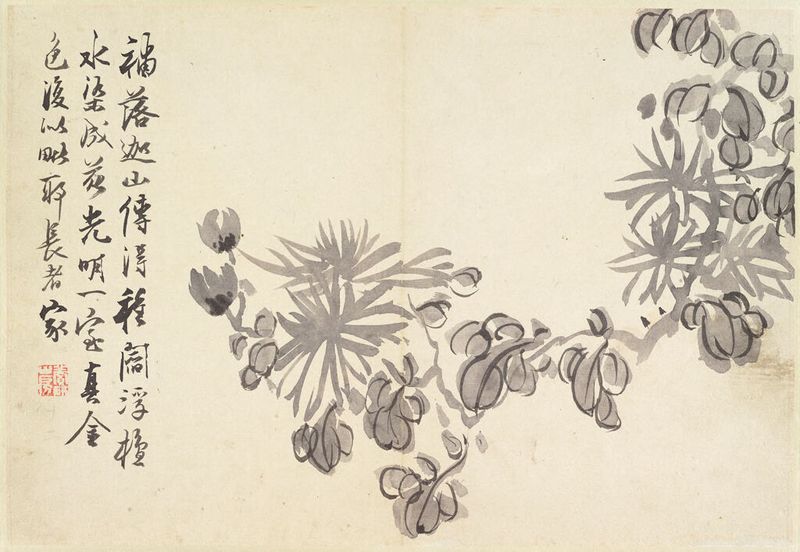 補落迦山傳得種閻浮檀
水染成花光明一室真金
色復似毗耶長者家